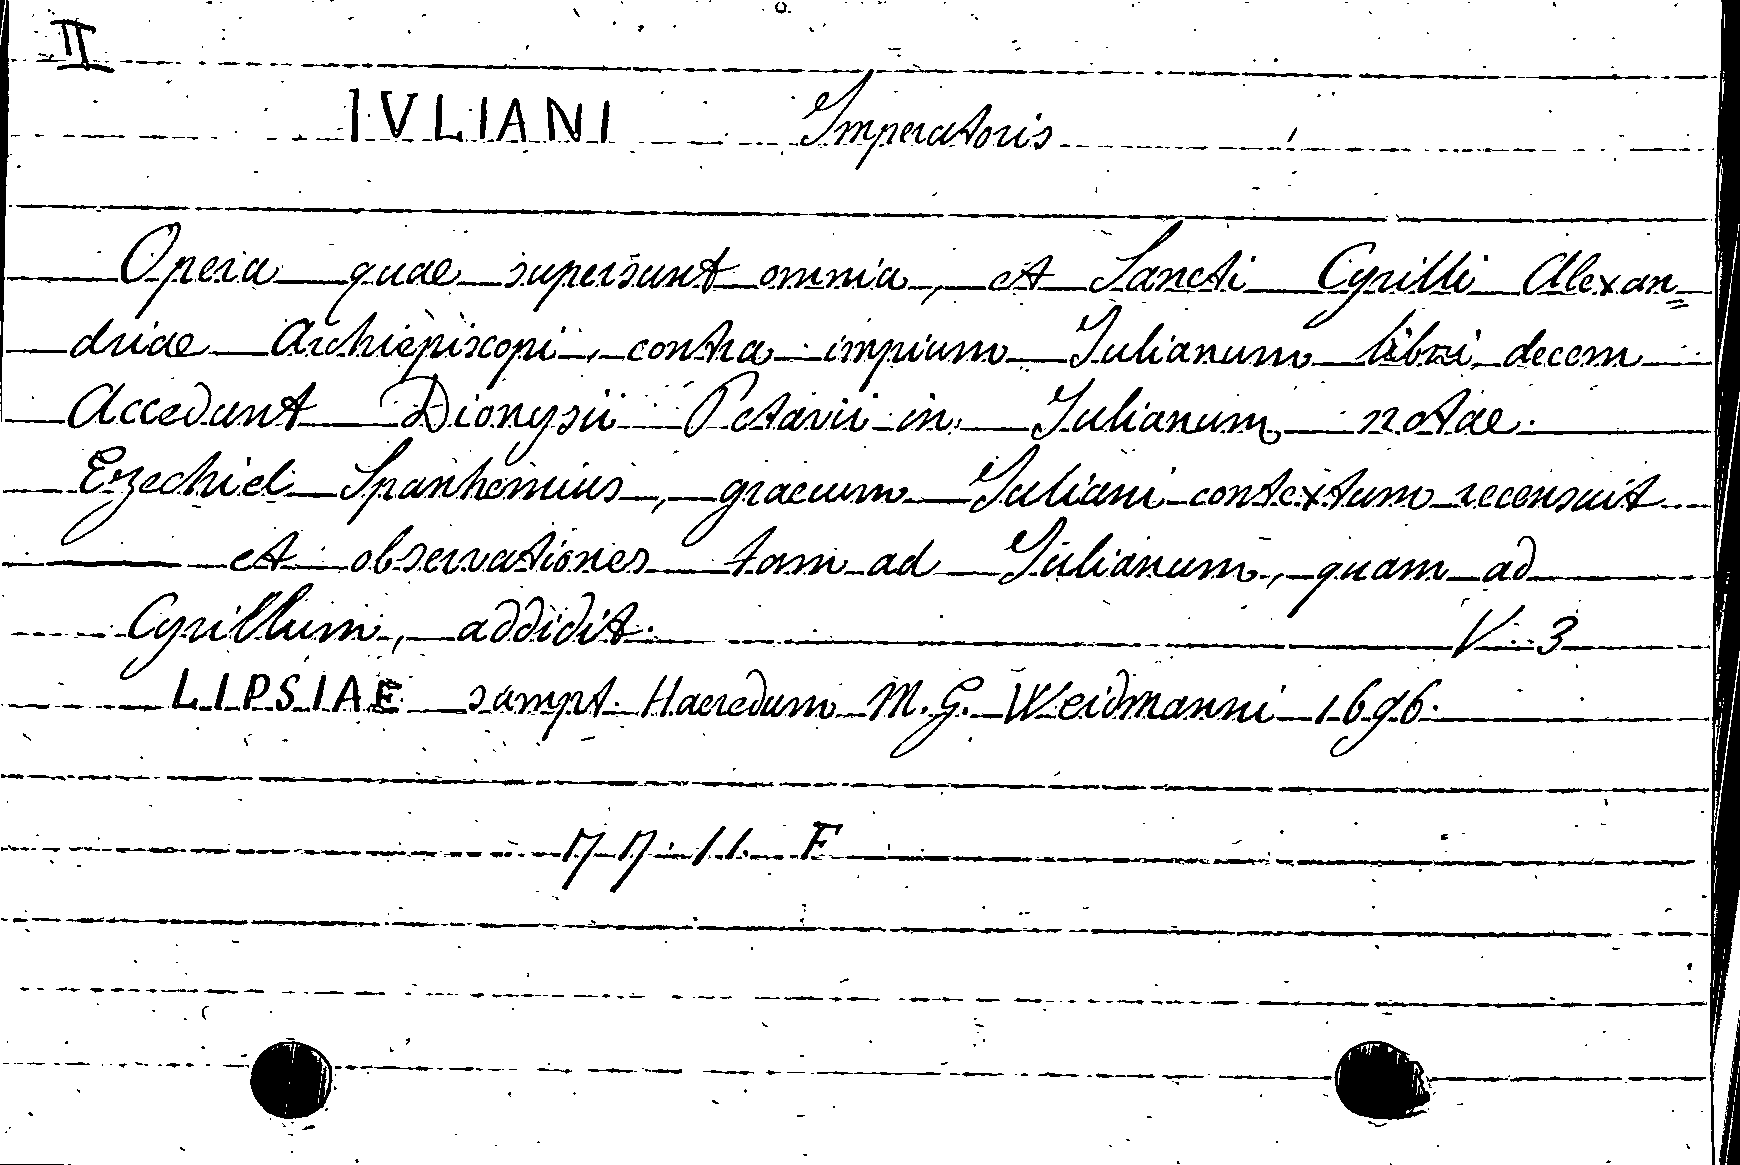 II
IVLIANI Imperatoris
Opera quae supersunt omnia, et Sancti Cyrilli Alexan=
driae Archiepiscopi, contra impium Iulianum libri decem
Accedunt Dionysii Petavii in Iulianum notae.
Ezechiel Spanhemius, graecum Iuliani contextum recensuit
et observationes tam ad Iulianum, quam ad
Cyrillum, addidit. V. 3
LIPSIAE sumpt. Haeredum M. G. Weidmanni 1696.
77. 11. F